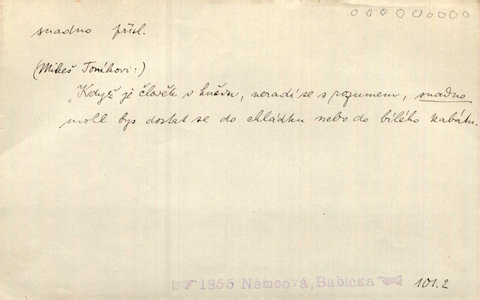 snadno přísl.
(Mikeš Tomkovi:)
"Když je člověk v hněvu, neradí se s rozumem, snadno
mohl bys dostat se do chládku nebo do bílého kabátu.
1855 Němcová, Babička
101.2